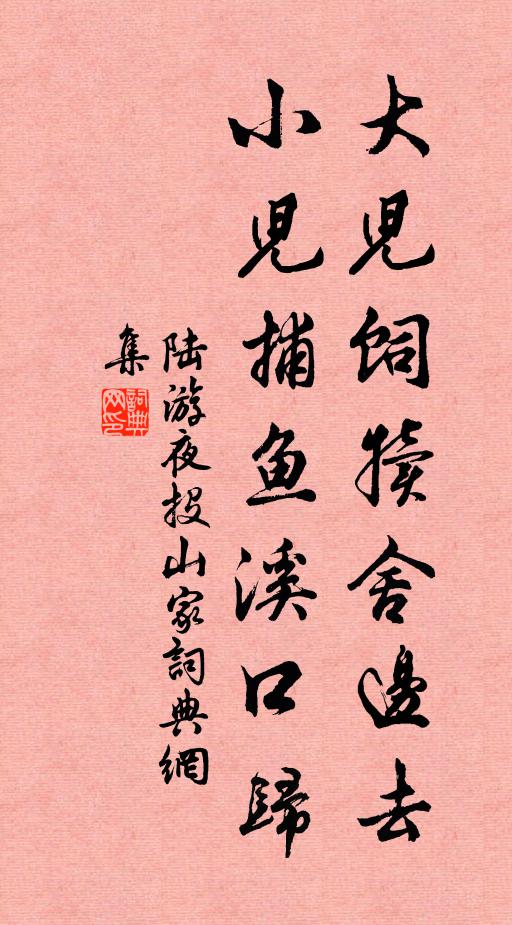 大児飼犢舍邊去
小児捕鱼溪口歸
陆游夜投山家詞典網
集
詞典网印